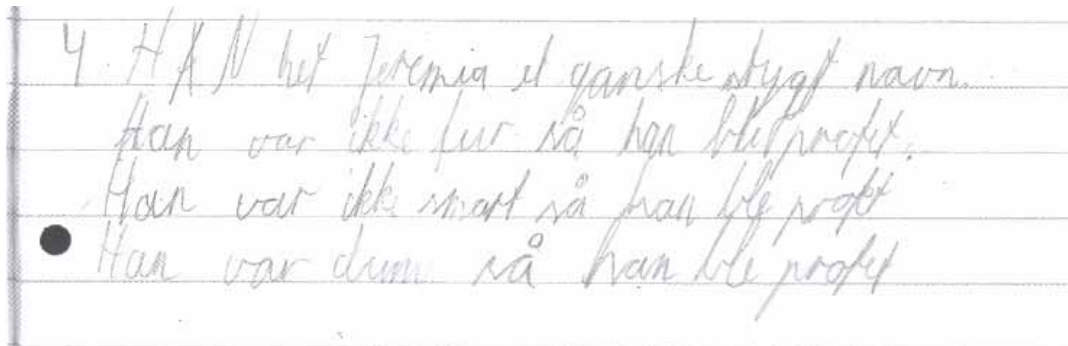 4 HAN het Jeremia et ganske stygt navn.
Han var ikke lur så han ble profet.
Han var ikke smart så han ble profet
Han var dum så han ble profet